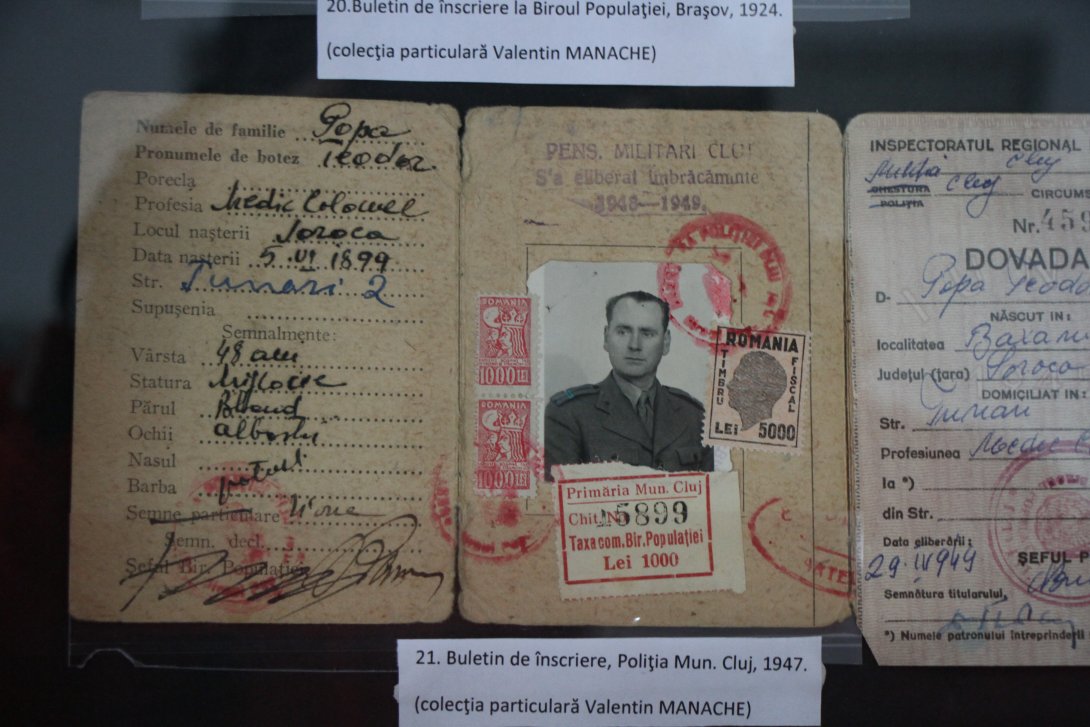 20.Buletin de înscriere la Biroul Populaţiei, Braşov, 1924.
(colecţia particulară Valentin MANACHE)
Numele de familie Popa
Pronumele de botez Teodor
Porecla
Profesia Medic Colonel
Locul naşterii Soroca
Data naşterii 5 VI 1899
Str. Tunari 2
Supuşenia
Semnalmente:
Vârsta 48 ani
Statura Mijlocie
Părul Blond
Ochii albaştri
Nasul
Barba potrivit
Semne particulare
Semn. decl.
Şeful Bir. Populaţiei
PENS. MILITARI CLUJ
S'a eliberat îmbrăcăminte
1948—1949.
ROMANIA
1000 LEI
ROMANIA
1000 LEI
ROMÂNIA
TIMBRU FISCAL
LEI 5000
Primăria Mun. Cluj
Chit. № 15899
Taxa com. Bir. Populaţiei
Lei 1000
INSPECTORATUL REGIONAL
Cluj
Miliţia Cluj
CHESTURA
POLIŢIA
CIRCUM
Nr. 455
DOVADA
D- Popa Teodo
NĂSCUT IN:
localitatea
Judeţul (ţara) Soroca
DOMICILIAT IN:
Str. Tunari
Profesiunea Medic
la *)
din Str.
Data eliberării:
29.IV 1949
ŞEFUL P
Semnătura titularului,
*) Numele patronului întreprinderii
21. Buletin de înscriere, Poliţia Mun. Cluj, 1947.
(colecţia particulară Valentin MANACHE)